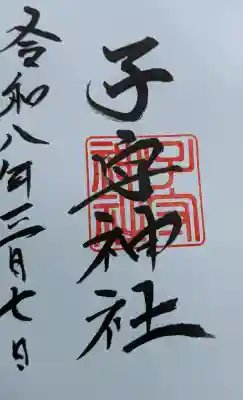 子守神社
子守
神社
令和八年三月七日